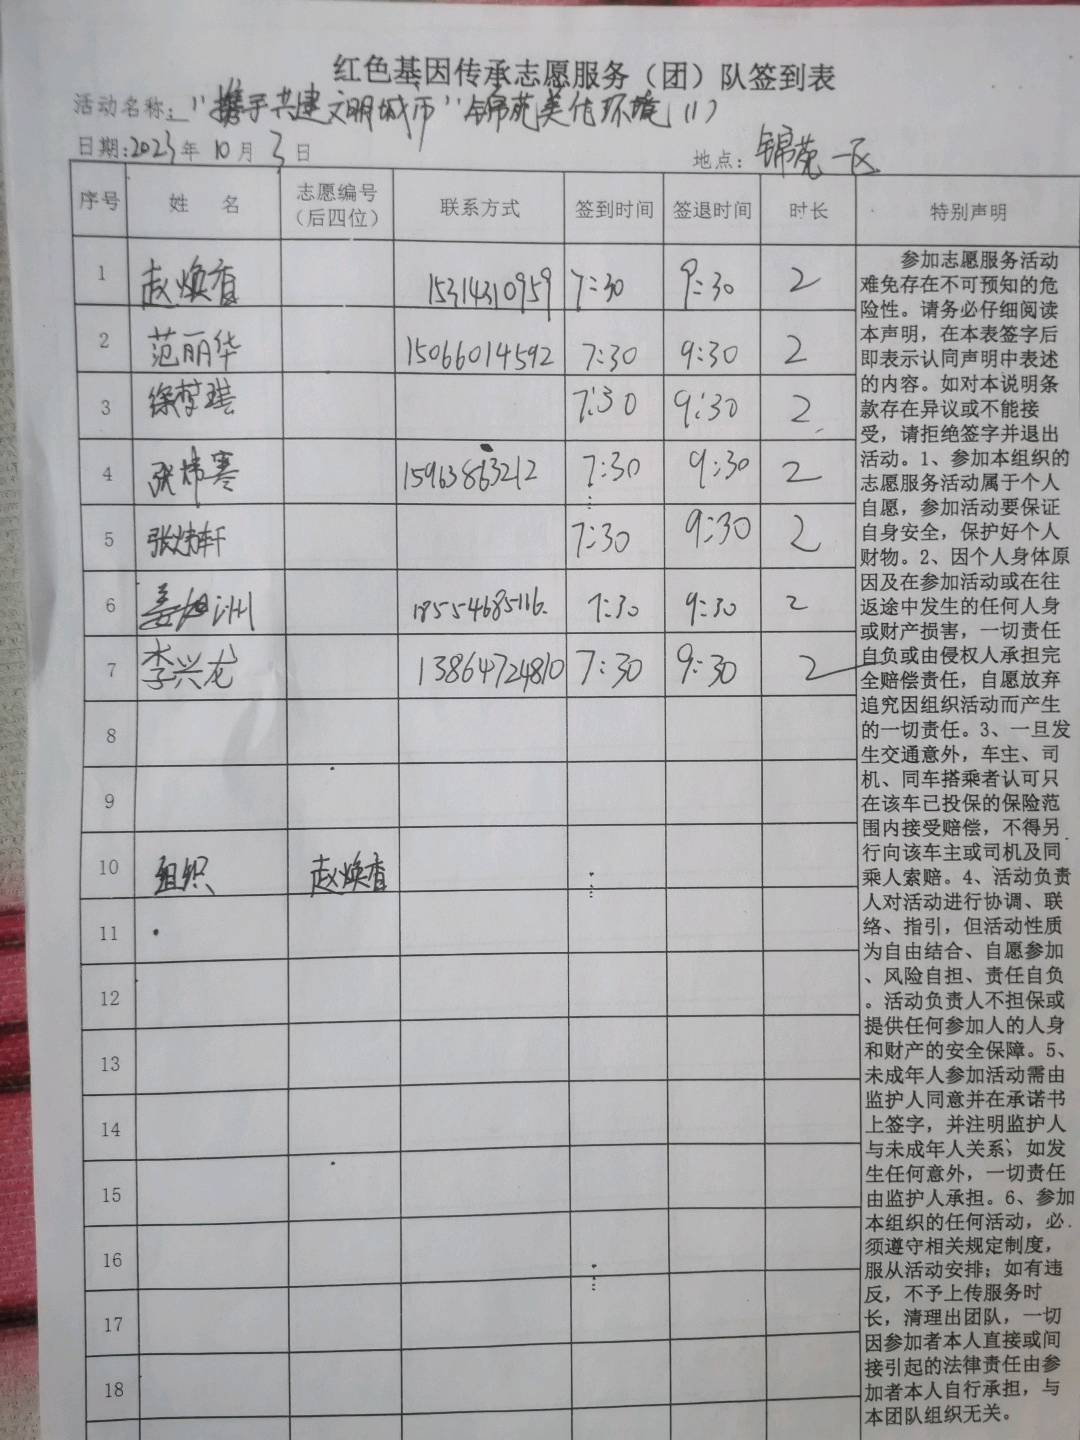 红色基因传承志愿服务（团）队签到表
活动名称："携手共建文明城市"锦苑美化环境(1)
日期:2023年10月3日 地点：锦苑一区
序号 姓 名 志愿编号（后四位） 联系方式 签到时间 签退时间 时长 特别声明
1 赵焕香 15314310959 7:30 9:30 2
2 范丽华 15066014592 7:30 9:30 2
3 徐梦琪 7:30 9:30 2
4 张炜骞 15963863212 7:30 9:30 2
5 张炜轩 7:30 9:30 2
6 18554685116. 7:30 9:30 2
7 李兴龙 13864724810 7:30 9:30 2
8
9
10 组织 赵焕香
11
12
13
14
15
16
17
18
参加志愿服务活动
难免存在不可预知的危
险性。请务必仔细阅读
本声明，在本表签字后
即表示认同声明中表述
的内容。如对本说明条
款存在异议或不能接
受，请拒绝签字并退出
活动。1、参加本组织的
志愿服务活动属于个人
自愿，参加活动要保证
自身安全，保护好个人
财物。2、因个人身体原
因及在参加活动或在往
返途中发生的任何人身
或财产损害，一切责任
自负或由侵权人承担完
全赔偿责任，自愿放弃
追究因组织活动而产生
的一切责任。3、一旦发
生交通意外，车主、司
机、同车搭乘者认可只
在该车已投保的保险范
围内接受赔偿，不得另
行向该车主或司机及同
乘人索赔。4、活动负责
人对活动进行协调、联
络、指引，但活动性质
为自由结合、自愿参加
、风险自担、责任自负
。活动负责人不担保或
提供任何参加人的人身
和财产的安全保障。5、
未成年人参加活动需由
监护人同意并在承诺书
上签字，并注明监护人
与未成年人关系，如发
生任何意外，一切责任
由监护人承担。6、参加
本组织的任何活动，必
须遵守相关规定制度，
服从活动安排；如有违
反，不予上传服务时
长，清理出团队，一切
因参加者本人直接或间
接引起的法律责任由参
加者本人自行承担，与
本团队组织无关。